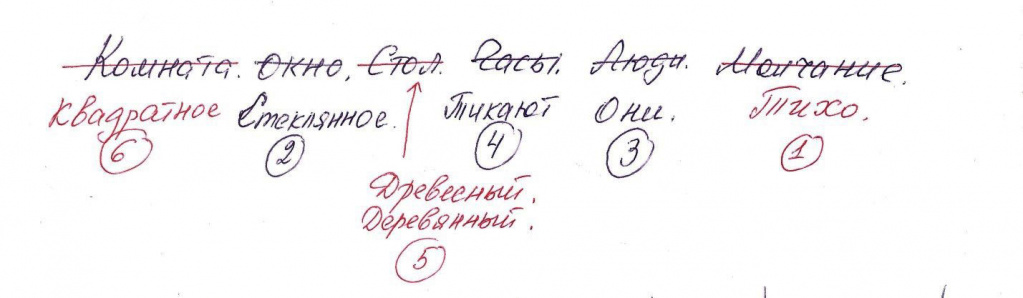 Комната. Окно. Стол. Часы. Люди. Молчание.
Квадратное Стеклянное. Тикают Они. Тихо.
6 2 4 3 1
Древесный.
Деревянный.
5